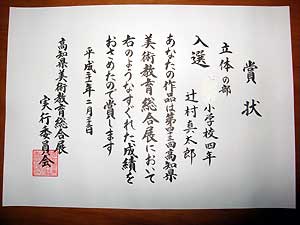 賞状
立体の部
小学校四年
入選 辻村真太郎
あなたの作品は第四三回高知県
美術教育総合展において
右のようなすぐれた成績を
おさめたので賞します
平成二十一年二月二十二日
高知県美術教育総合展
実行委員会